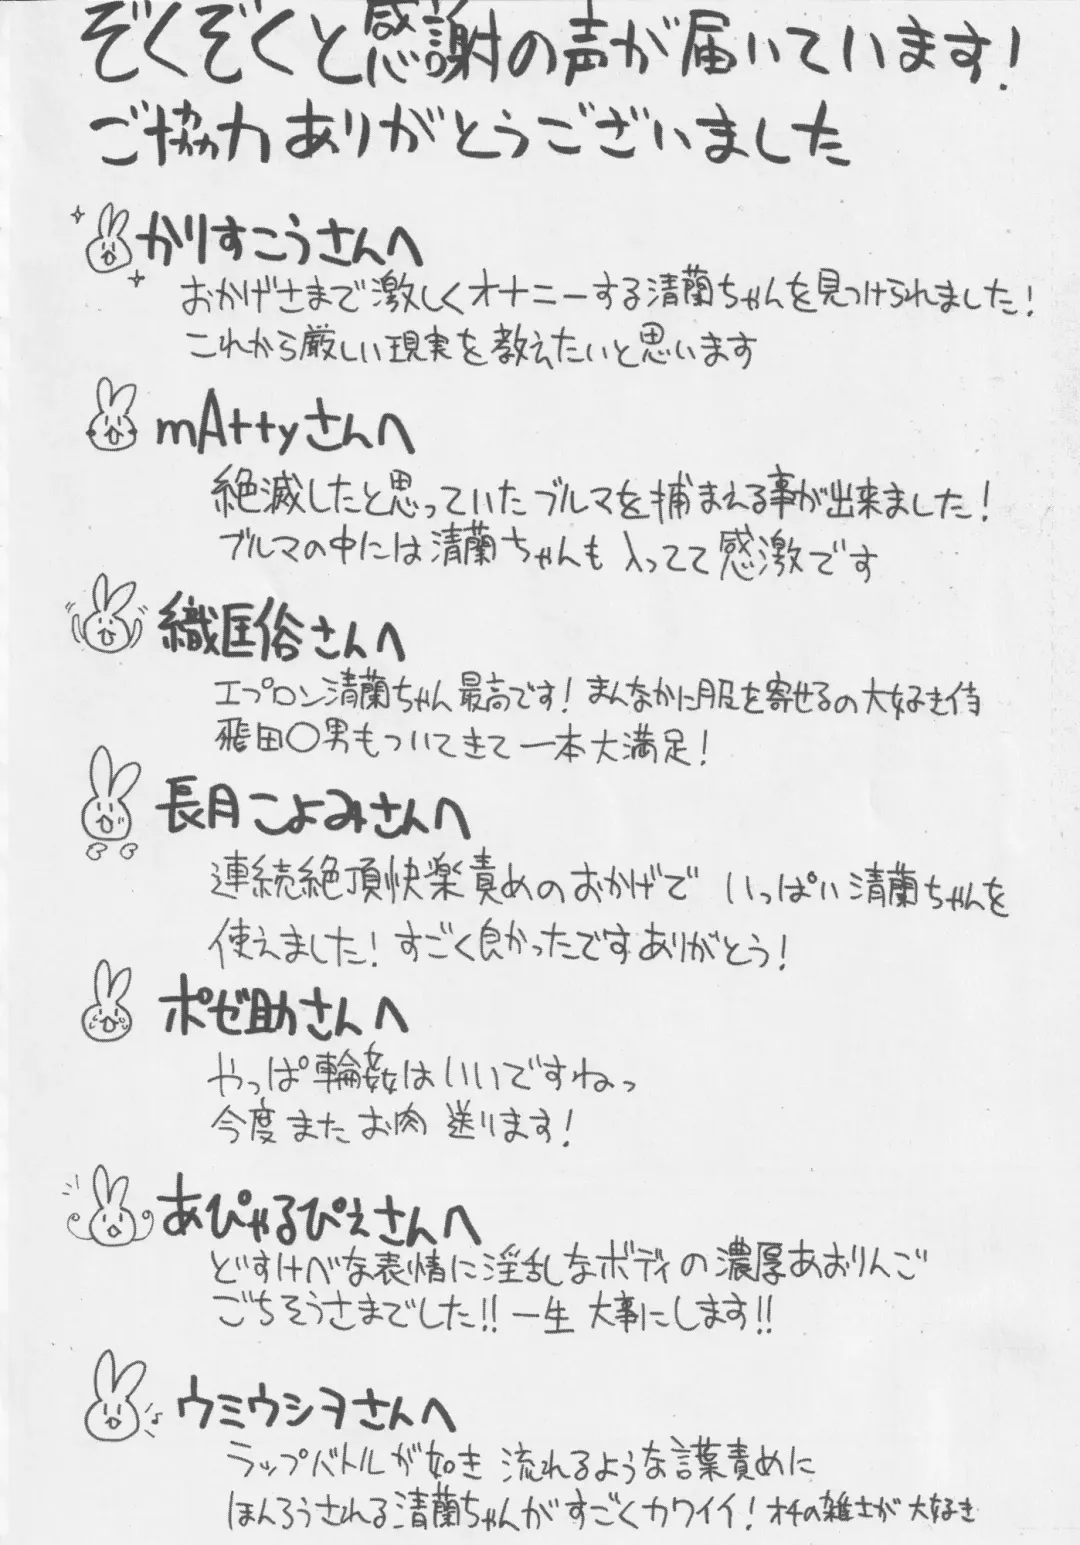 ぞくぞくと感謝の声が届いています!
ご協力ありがとうございました
かりすこうさんへ
おかげさまで激しくオナニーする清蘭ちゃんを見つけられました!
これから厳しい現実を教えたいと思います
mAttyさんへ
絶滅したと思っていたブルマを捕まえる事が出来ました!
ブルマの中には清蘭ちゃんも入ってて感激です
織匡俗さんへ
エプロン清蘭ちゃん最高です!まんなかに服を寄せるの大好き侍
飛田〇男もついてきて一本大満足!
長月こよみさんへ
連続絶頂快楽責めのおかげでいっぱい清蘭ちゃんを
使えました!すごく良かったですありがとう!
ポゼ助さんへ
やっぱ輪姦はいいですねっ
今度またお肉送ります!
あぴゃるぴえさんへ
どすけべな表情に淫乱なボディの濃厚あおりんご
ごちそうさまでした!!一生大事にします!!
ウミウシヲさんへ
ラップバトルが如き流れるような言葉責めに
ほんろうされる清蘭ちゃんがすごくカワイイ!オチの雑さが大好き